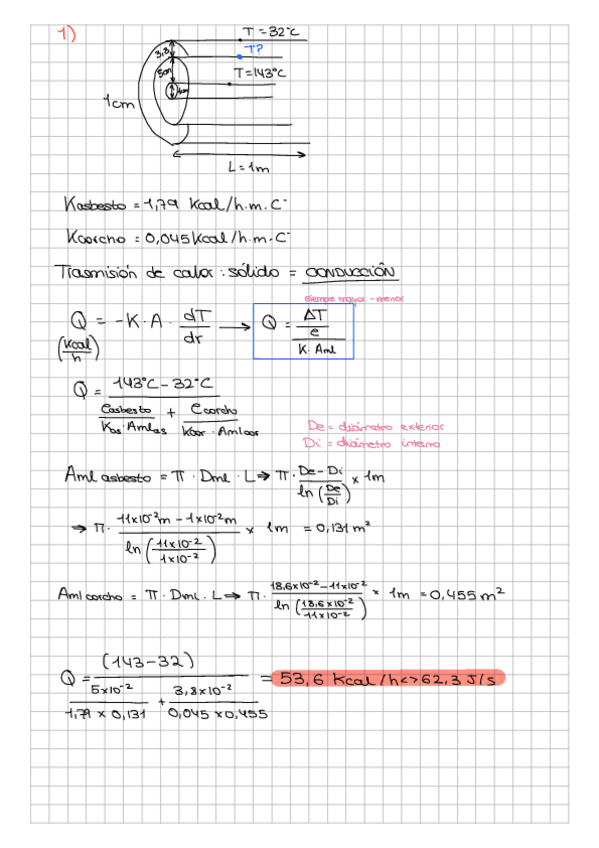 1)
T = 32°C
T?
3,8
5cm
T = 143°C
1cm
L = 1m
Kasbesto = 1,79 Kcal/h.m.C°
Kcorcho = 0,045 Kcal/h.m.C°
Trasmisión de calor : sólido = CONDUCCIÓN
siempre mayor - menor
Q = -K·A · dT/dr → Q = ΔT / (e / K·Aml)
(Kcal/h)
Q = (143°C - 32°C) / (easbesto / Kas·Amlas + ecorcho / Kcor·Amlcor)
De = diámetro exterior
Di = diámetro interno
Aml asbesto = π · Dml · L ⇒ π · (De - Di) / ln (De/Di) × 1m
⇒ π · (11x10⁻²m - 1x10⁻²m) / ln (11x10⁻² / 1x10⁻²) × 1m = 0,131 m²
Aml corcho = π · Dml · L ⇒ π · (18,6x10⁻² - 11x10⁻²) / ln (18,6x10⁻² / 11x10⁻²) × 1m = 0,455 m²
Q = (143 - 32) / (5x10⁻² / 1,79 x 0,131 + 3,8x10⁻² / 0,045 x 0,455) = 53,6 Kcal/h <> 62,3 J/s